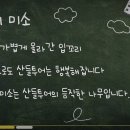 미소
가볍게 올라간 입꼬리
산들투어는 행복해집니다
미소는 산들투어의 든직한 나무입니다.